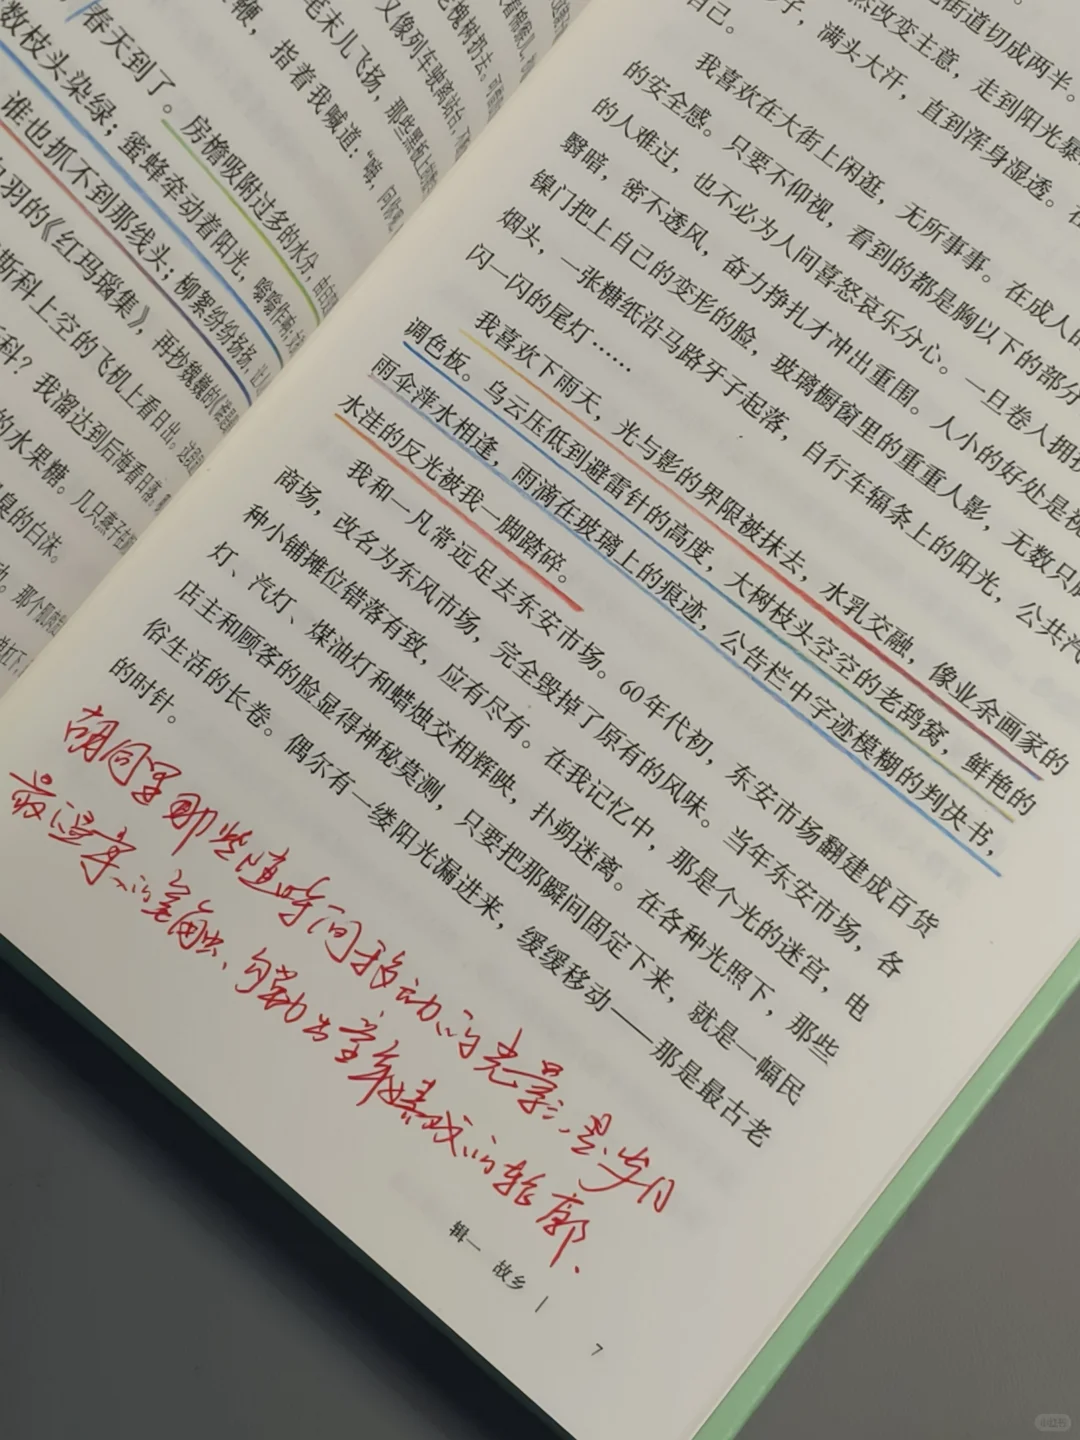 春天到了。房檐吸附过多的水分，由白变
数枝头染绿；蜜蜂牵动着阳光，嗡嗡作响；
谁也抓不到那线头；柳絮纷纷扬扬，让
羽的《红玛瑙集》，再抄魏巍的《
斯科上空的飞机上看日出。这
科？我溜达到后海看日落，
的水果糖。几只燕子在
臭的白沫。
鞭，指着我喊道：“嘀，
笔末儿飞扬，那些黑板上
又像列车驶离站台，
老槐树扔去。
街道切成两半。
然改变主意，走到阳光暴
子，满头大汗，直到浑身湿透。在
自己。
我喜欢在大街上闲逛，无所事事。在成人的
的安全感。只要不仰视，看到的都是胸以下的部分
的人难过，也不必为人间喜怒哀乐分心。一旦卷入拥挤
翳暗，密不透风，奋力挣扎才冲出重围。人小的好处是视
镍门把上自己的变形的脸，玻璃橱窗里的重重人影，无数只脚
烟头，一张糖纸沿马路牙子起落，自行车辐条上的阳光，公共汽
闪一闪的尾灯……
我喜欢下雨天，光与影的界限被抹去，水乳交融，像业余画家的
调色板。乌云压低到避雷针的高度，大树枝头空空的老鸹窝，鲜艳的
雨伞萍水相逢，雨滴在玻璃上的痕迹，公告栏中字迹模糊的判决书，
水洼的反光被我一脚踏碎。
我和一凡常远足去东安市场。60年代初，东安市场翻建成百货
商场，改名为东风市场，完全毁掉了原有的风味。当年东安市场，各
种小铺摊位错落有致，应有尽有。在我记忆中，那是个光的迷宫，电
灯、汽灯、煤油灯和蜡烛交相辉映，扑朔迷离。在各种光照下，那些
店主和顾客的脸显得神秘莫测，只要把那瞬间固定下来，就是一幅民
俗生活的长卷。偶尔有一缕阳光漏进来，缓缓移动——那是最古老
的时针。
胡同里那些随时间移动的光影，是岁月
最温柔的笔触，勾勒出童年嬉戏的轮廓.
辑一 故乡 |
7
小红书